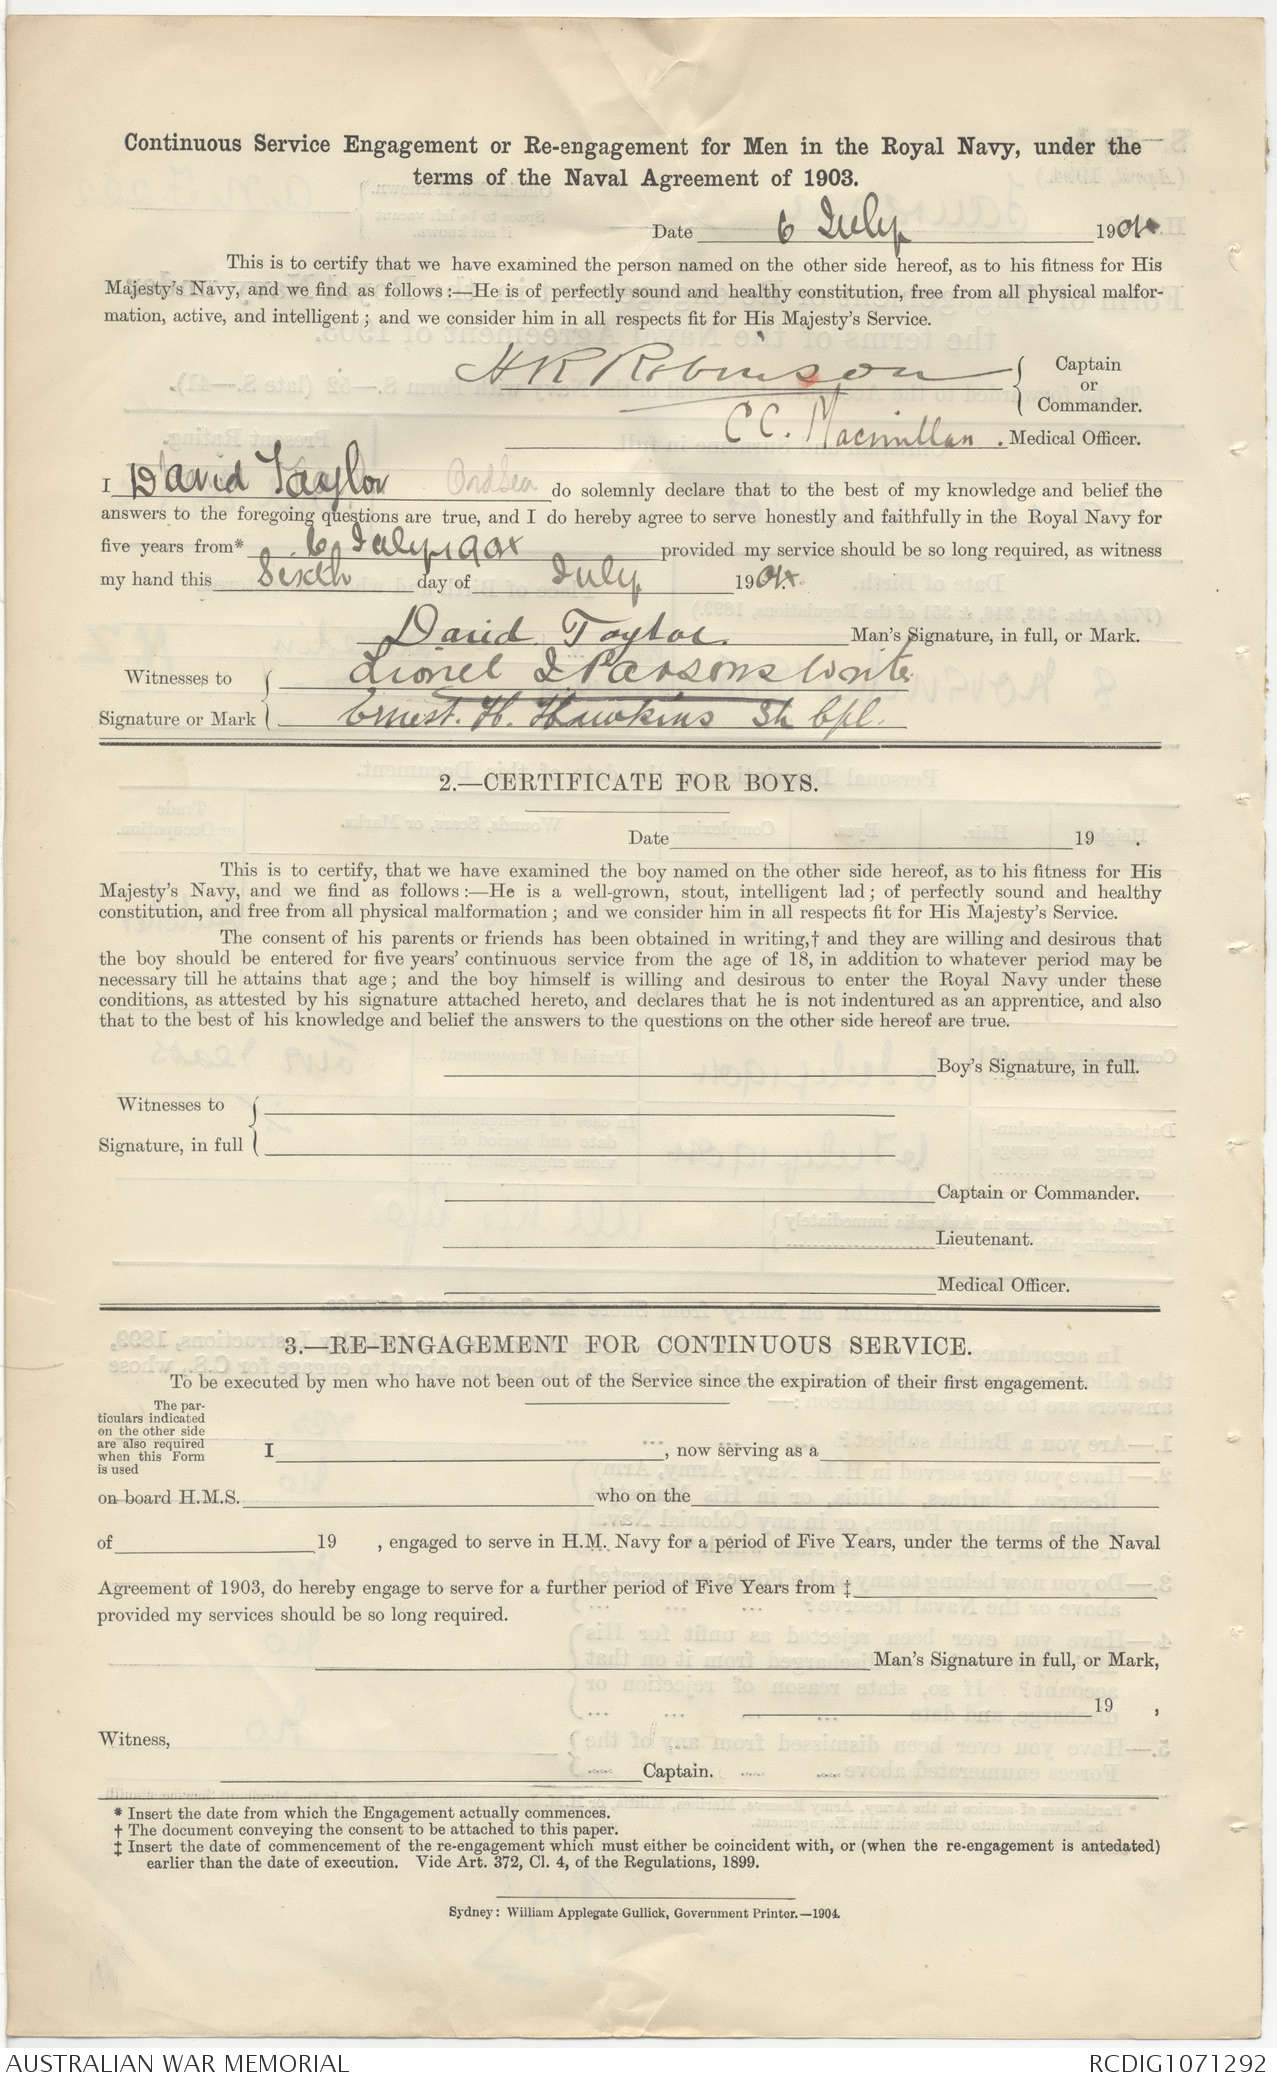 Continuous Service Engagement or Re-engagement for Men in the Royal Navy, under the
terms of the Naval Agreement of 1903.
Date 6 July 1904
This is to certify that we have examined the person named on the other side hereof, as to his fitness for His
Majesty's Navy, and we find as follows:—He is of perfectly sound and healthy constitution, free from all physical malfor-
mation, active, and intelligent; and we consider him in all respects fit for His Majesty's Service.
H R Robinson { Captain or Commander.
C C. Macmillan. Medical Officer.
I David Taylor Ord Sea do solemnly declare that to the best of my knowledge and belief the
answers to the foregoing questions are true, and I do hereby agree to serve honestly and faithfully in the Royal Navy for
five years from* 6 July 1904 provided my service should be so long required, as witness
my hand this Sixth day of July 1904.
David Taylor. Man's Signature, in full, or Mark.
Witnesses to { Lionel Parsons Writer
Signature or Mark { Ernest. H. Hawkins Sh Cpl.
2.—CERTIFICATE FOR BOYS.
Date 19 .
This is to certify, that we have examined the boy named on the other side hereof, as to his fitness for His
Majesty's Navy, and we find as follows:—He is a well-grown, stout, intelligent lad; of perfectly sound and healthy
constitution, and free from all physical malformation; and we consider him in all respects fit for His Majesty's Service.
The consent of his parents or friends has been obtained in writing,† and they are willing and desirous that
the boy should be entered for five years' continuous service from the age of 18, in addition to whatever period may be
necessary till he attains that age; and the boy himself is willing and desirous to enter the Royal Navy under these
conditions, as attested by his signature attached hereto, and declares that he is not indentured as an apprentice, and also
that to the best of his knowledge and belief the answers to the questions on the other side hereof are true.
Boy's Signature, in full.
Witnesses to {
Signature, in full {
Captain or Commander.
Lieutenant.
Medical Officer.
3.—RE-ENGAGEMENT FOR CONTINUOUS SERVICE.
To be executed by men who have not been out of the Service since the expiration of their first engagement.
The par-
ticulars indicated
on the other side
are also required
when this Form
is used
I , now serving as a
on board H.M.S. who on the
of 19 , engaged to serve in H.M. Navy for a period of Five Years, under the terms of the Naval
Agreement of 1903, do hereby engage to serve for a further period of Five Years from ‡
provided my services should be so long required.
Man's Signature in full, or Mark,
19 ,
Witness,
Captain.
* Insert the date from which the Engagement actually commences.
† The document conveying the consent to be attached to this paper.
‡ Insert the date of commencement of the re-engagement which must either be coincident with, or (when the re-engagement is antedated)
earlier than the date of execution. Vide Art. 372, Cl. 4, of the Regulations, 1899.
Sydney: William Applegate Gullick, Government Printer.—1904.
AUSTRALIAN WAR MEMORIAL
RCDIG1071292